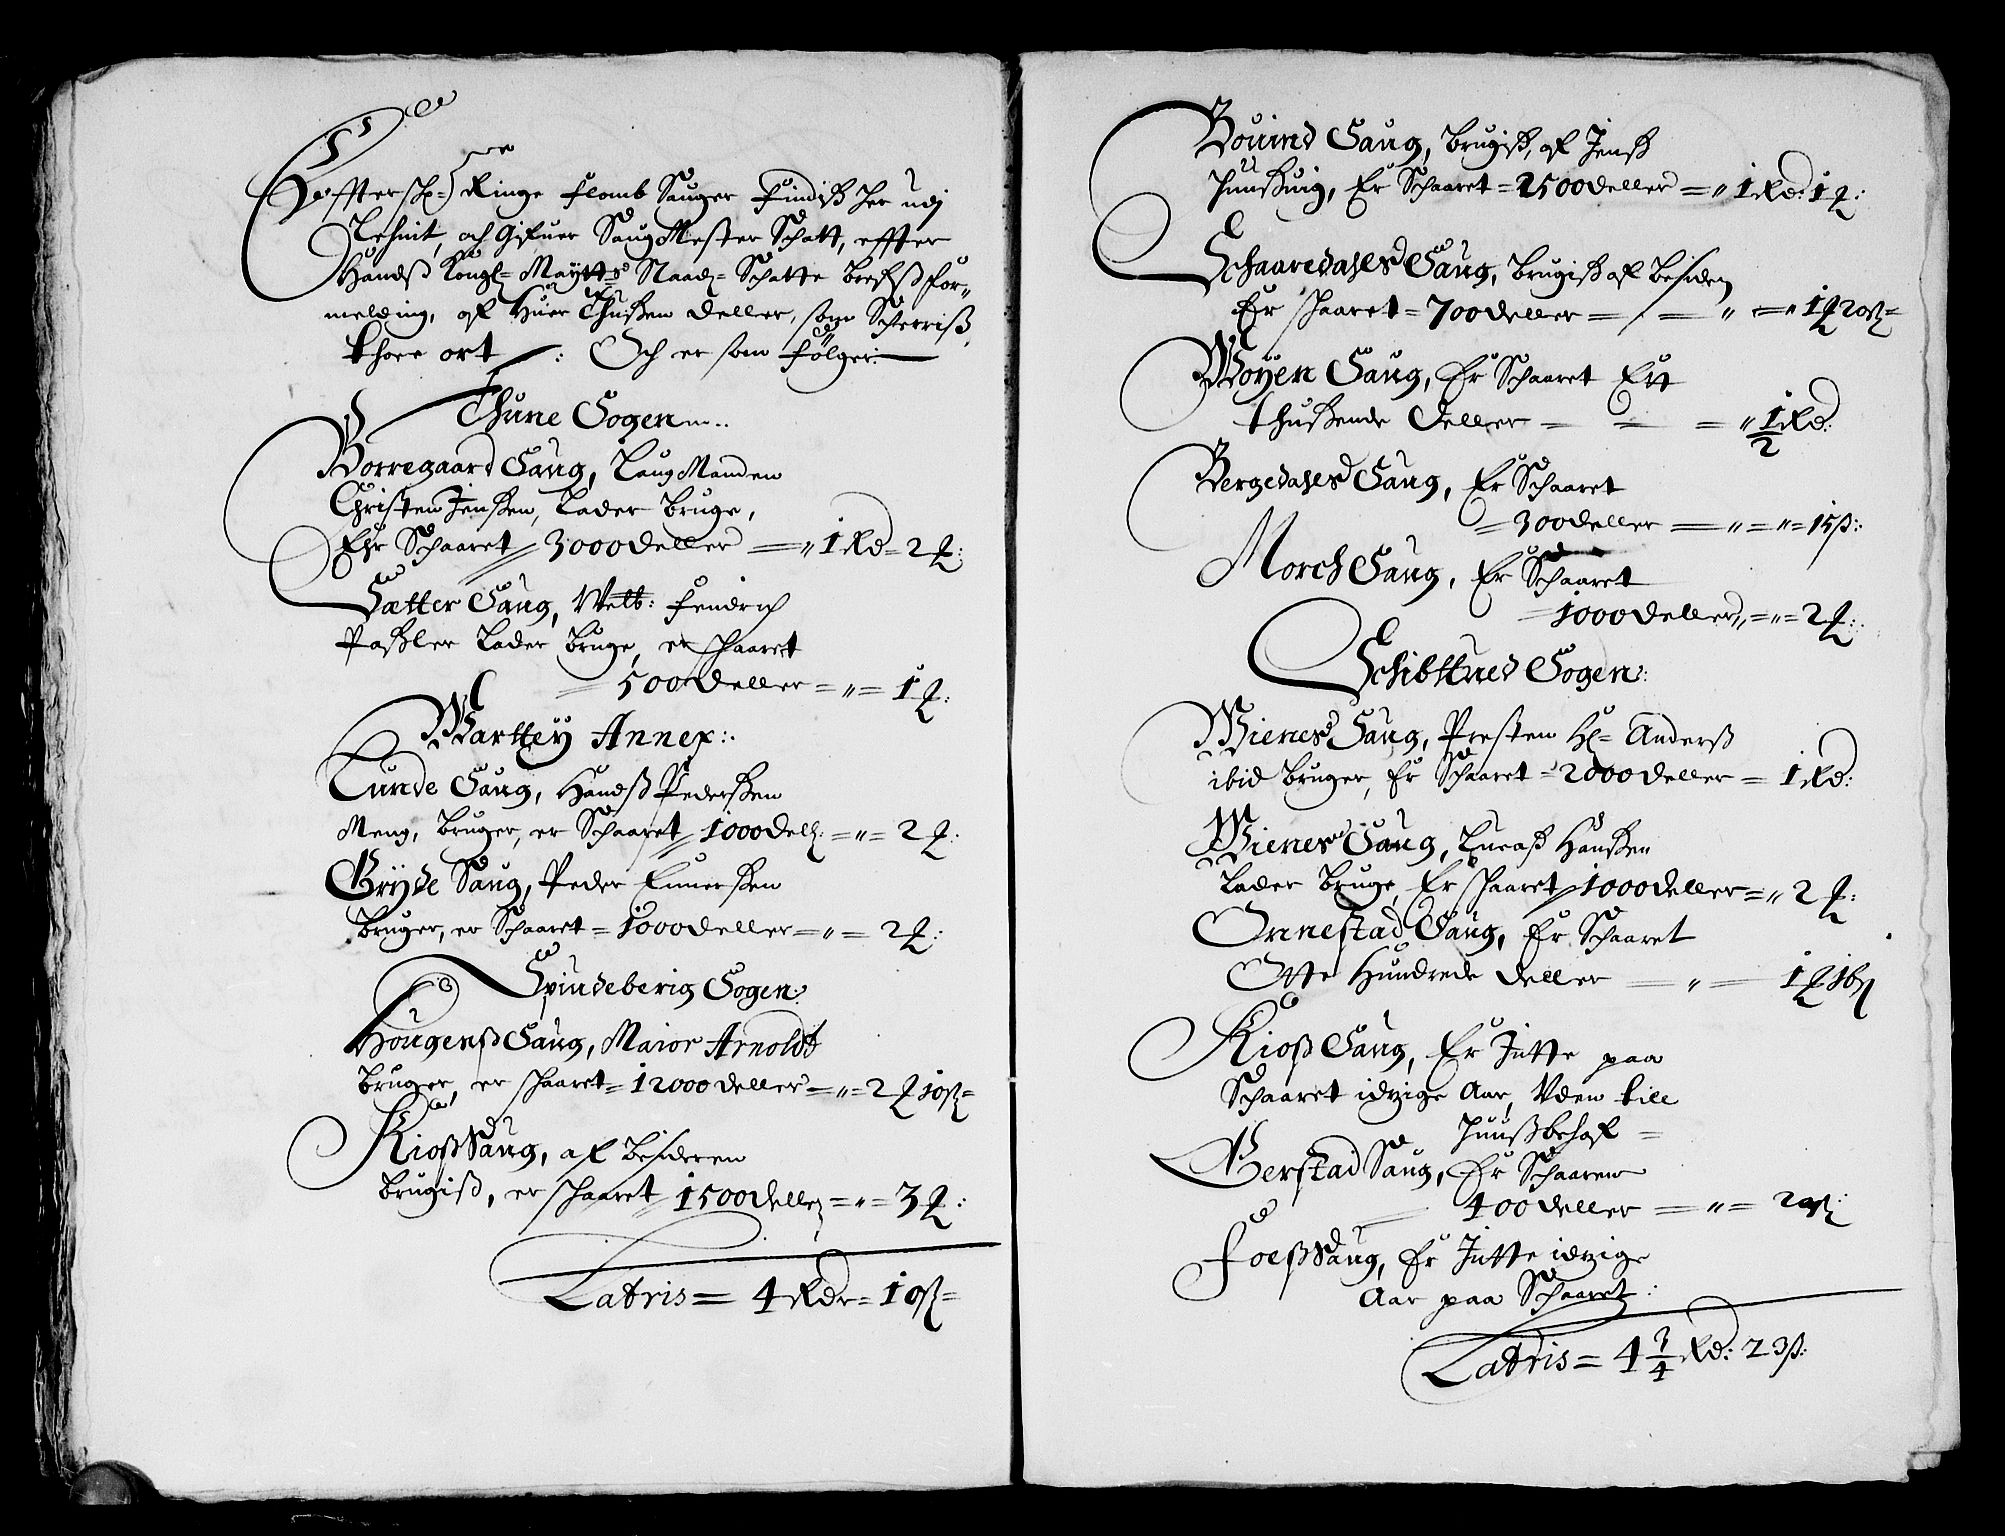 Effterschr: Ringe Flomb Sauger Findiss her udj
Lehnit, och Gifuer Saug Mester Schatt, effter
Handss Kongl= Maytts Naad= Schatte brefss for=
melding, af Huer Thussen deller, som Scherriss,
thore ort /: Och er som følger:
Thune Sogen
Borregaard Saug, Laug Manden
Christen Jenssen, Lader bruge,
Ehr Schaaret 3000 deller = " 1 Rd = 2 ȶ:
Sætter Saug, Welb: Fendrich
Lader bruge, er schaaret
= 500 deller = " = 1 ȶ:
Warttey Annex:
Lunde Saug, Handss Pederssen
Meng, bruger, er Schaaret 1000 dell: = " = 2 ȶ:
Gryde Saug, Peder Ennerssen
bruger, er Schaaret = 1000 deller = " = 2 ȶ:
Spindeberig Sogen:
Hougenss Saug, Maior Arnoldt
bruger, er schaaret = 12000 deller = " = 2 ȶ 10 ß=
Kioss Saug, af besideren
brugiss, er schaaret 1500 deller = " = 3 ȶ:
Latris = 4 Rdr = 10 ß=
Bouind Saug, brugiss, af Jenss
Er Schaaret = 2500 deller = " 1 Rd: 1 ȶ:
Schaaredahls Saug, brugiss af besideren
Er schaaret = 700 deller = " = " 1 ȶ 20 ß=
Moyen Saug, Er Schaaret Ett
thussende deller = = = " 1/2 Rd:
Bergedahls Saug, Er Schaaret
= 300 deller = " = " = 15 ß:
Morch Saug, Er Schaaret
= 1000 deller = " = 2 ȶ:
Schibttued Sogen:
Wienes Saug, Presten Hr= Anderss
ibid bruger, Er Schaaret = 2000 deller = 1 Rd:
Wienes Saug, Lucass Hanssen
Lader bruge, Er schaaret 1000 deller = " 2 ȶ:
Onnestad Saug, Er Schaaret
Otte Hundrede deller = " = 1 ȶ 16 ß
Kioss Saug, Er Intte paa
Schaaret idzige Aar, Uden till
huussbehof =
Gerstad Saug, Er Schaaren
400 deller = " = 20 ß:
Foess Saug, Er Intte idzige
Aar paa Schaaret:
Latris = 4 3/4 Rd: 23 ß: